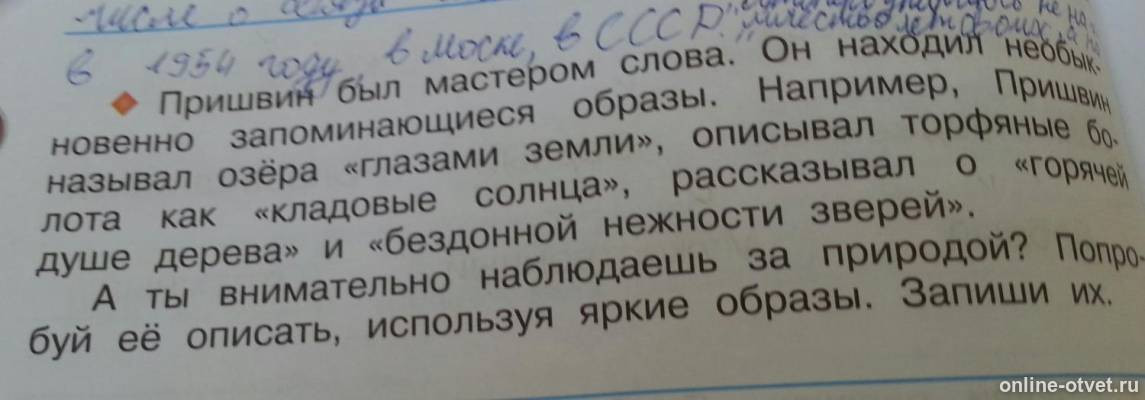 числе о
в 1954 году, в Москве, в СССР.
Пришвин был мастером слова. Он находил необык-
новенно запоминающиеся образы. Например, Пришвин
называл озёра «глазами земли», описывал торфяные бо-
лота как «кладовые солнца», рассказывал о «горячей
душе дерева» и «бездонной нежности зверей».
А ты внимательно наблюдаешь за природой? Попро-
буй её описать, используя яркие образы. Запиши их.
online-otvet.ru